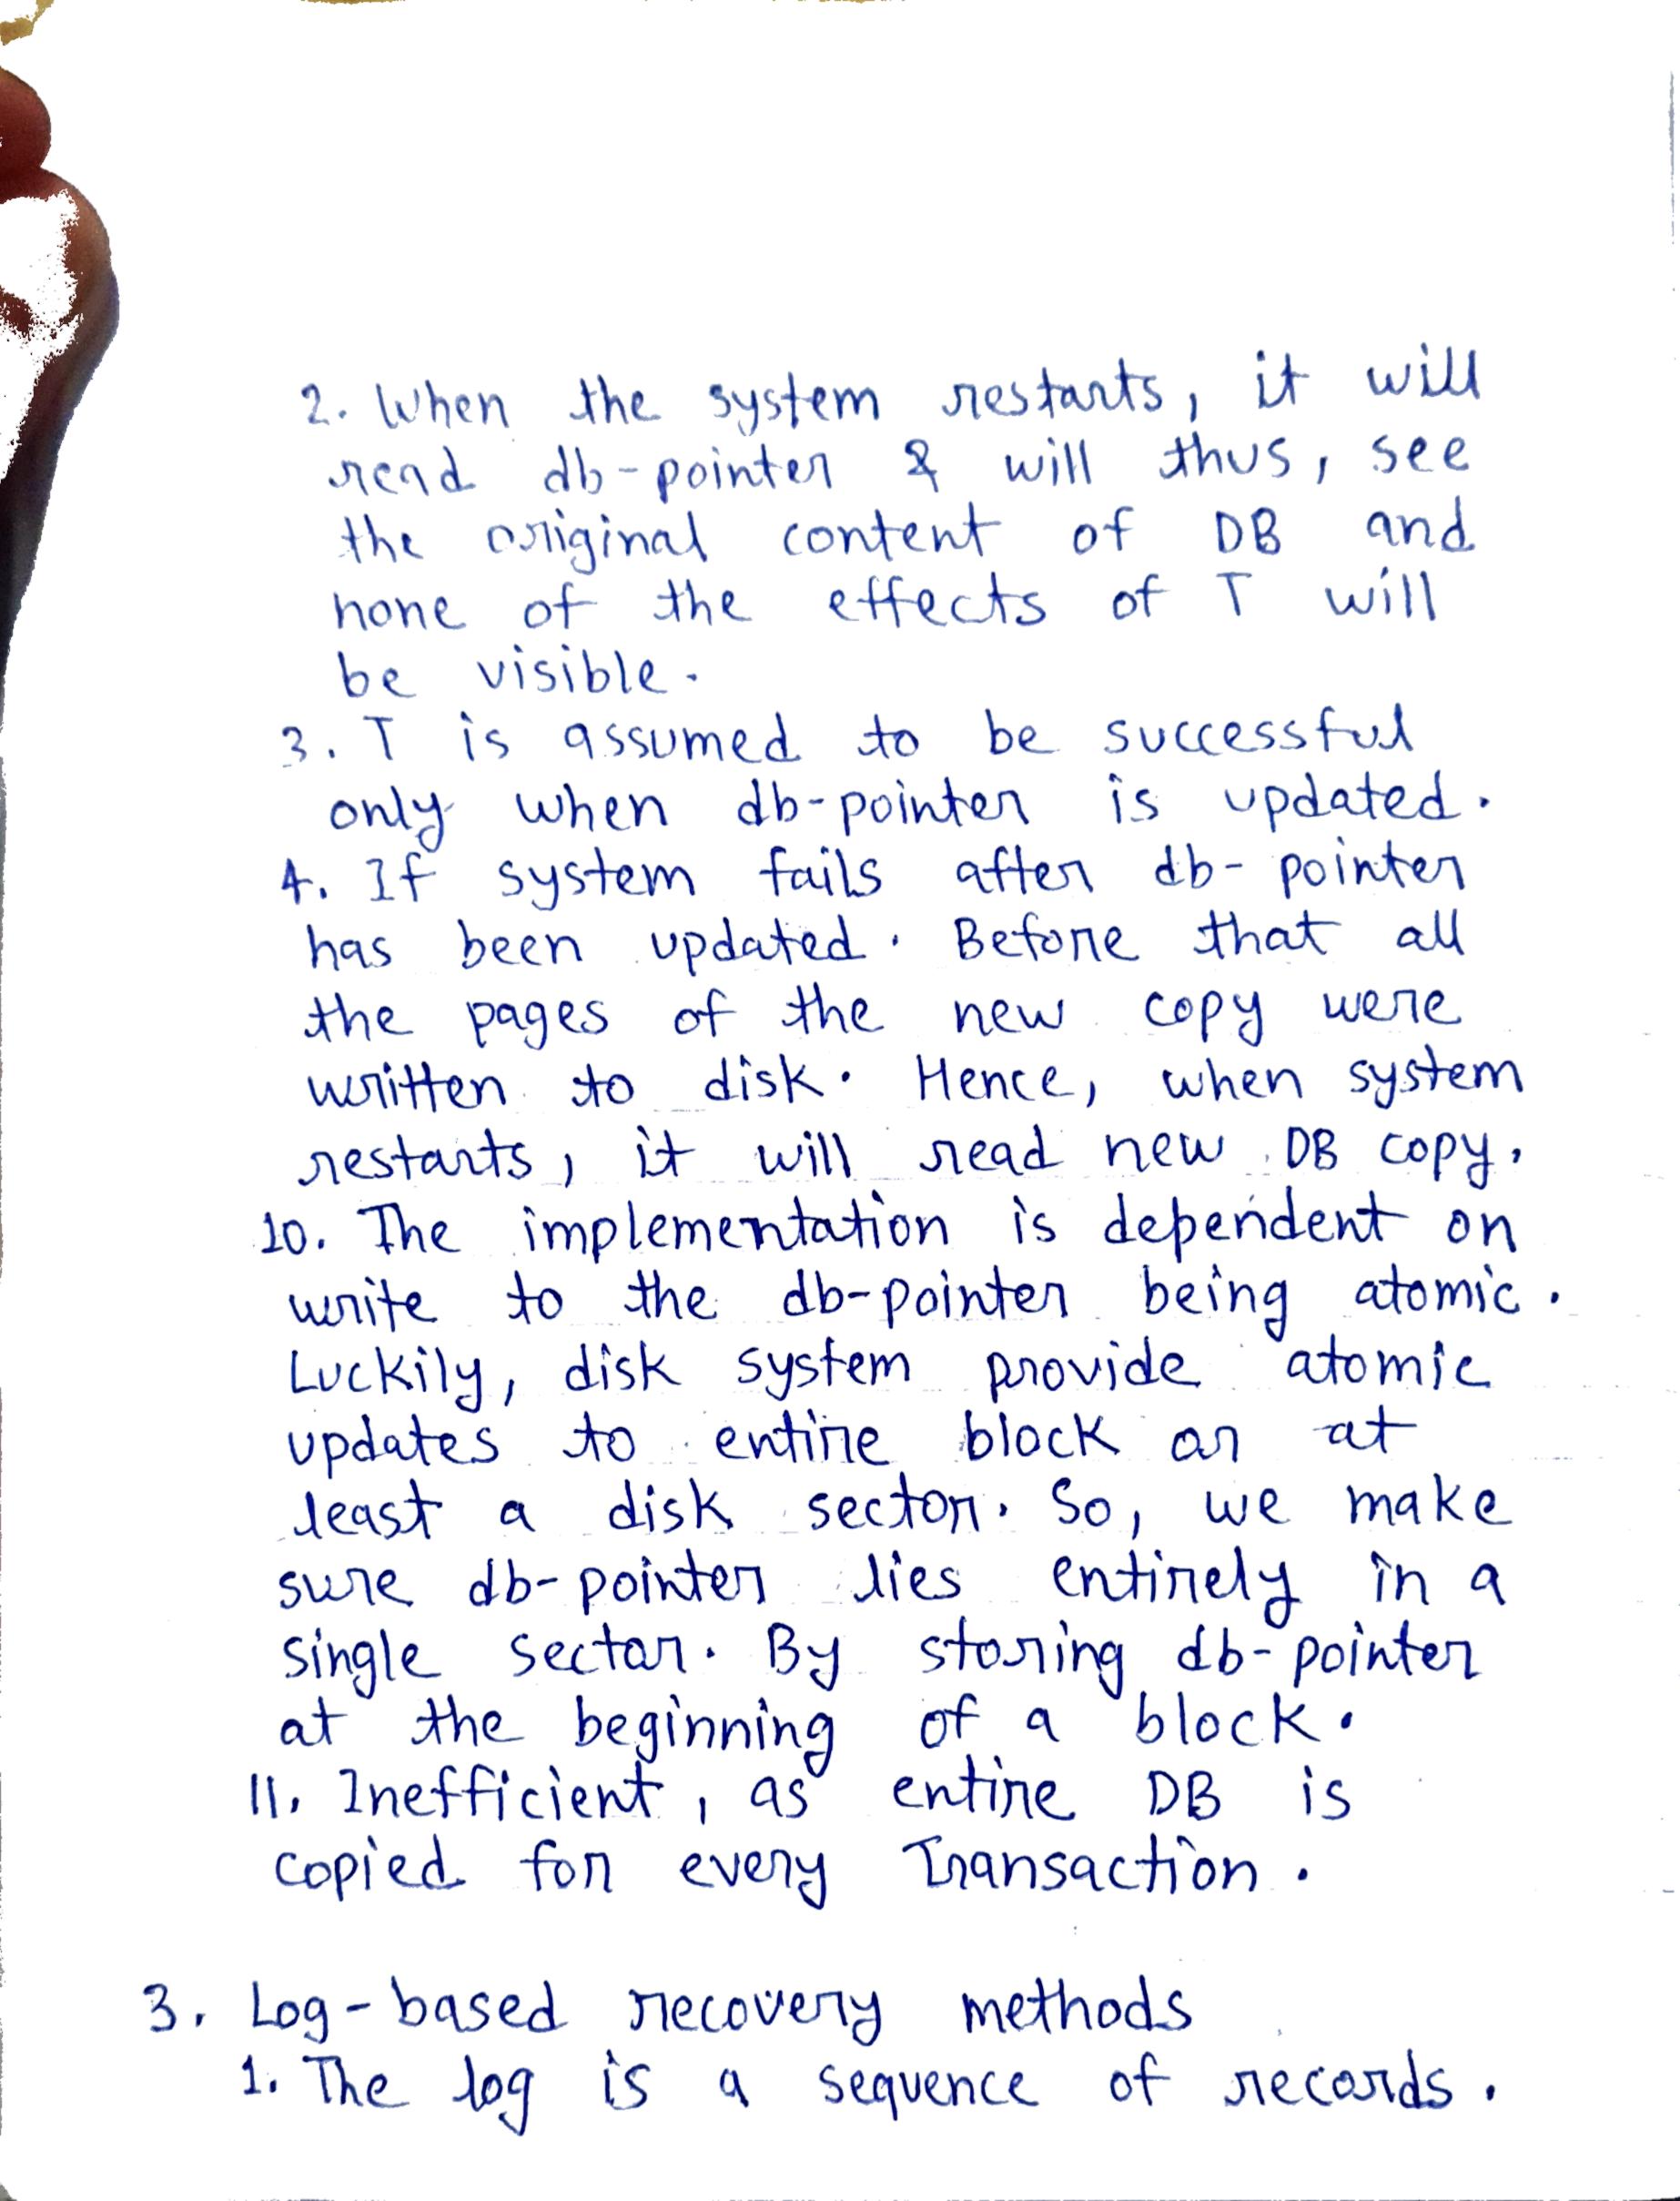 2. When the system restarts, it will
read db-pointer & will thus, see
the original content of DB and
none of the effects of T will
be visible.
3. T is assumed to be successful
only when db-pointer is updated.
4. If system fails after db-pointer
has been updated. Before that all
the pages of the new copy were
written to disk. Hence, when system
restarts, it will read new DB copy.
10. The implementation is dependent on
write to the db-pointer being atomic.
Luckily, disk system provide atomic
updates to entire block or at
least a disk sector. So, we make
sure db-pointer lies entirely in a
single sector. By storing db-pointer
at the beginning of a block.
11. Inefficient, as entire DB is
copied for every Transaction.
3. Log-based recovery methods
1. The log is a sequence of records.